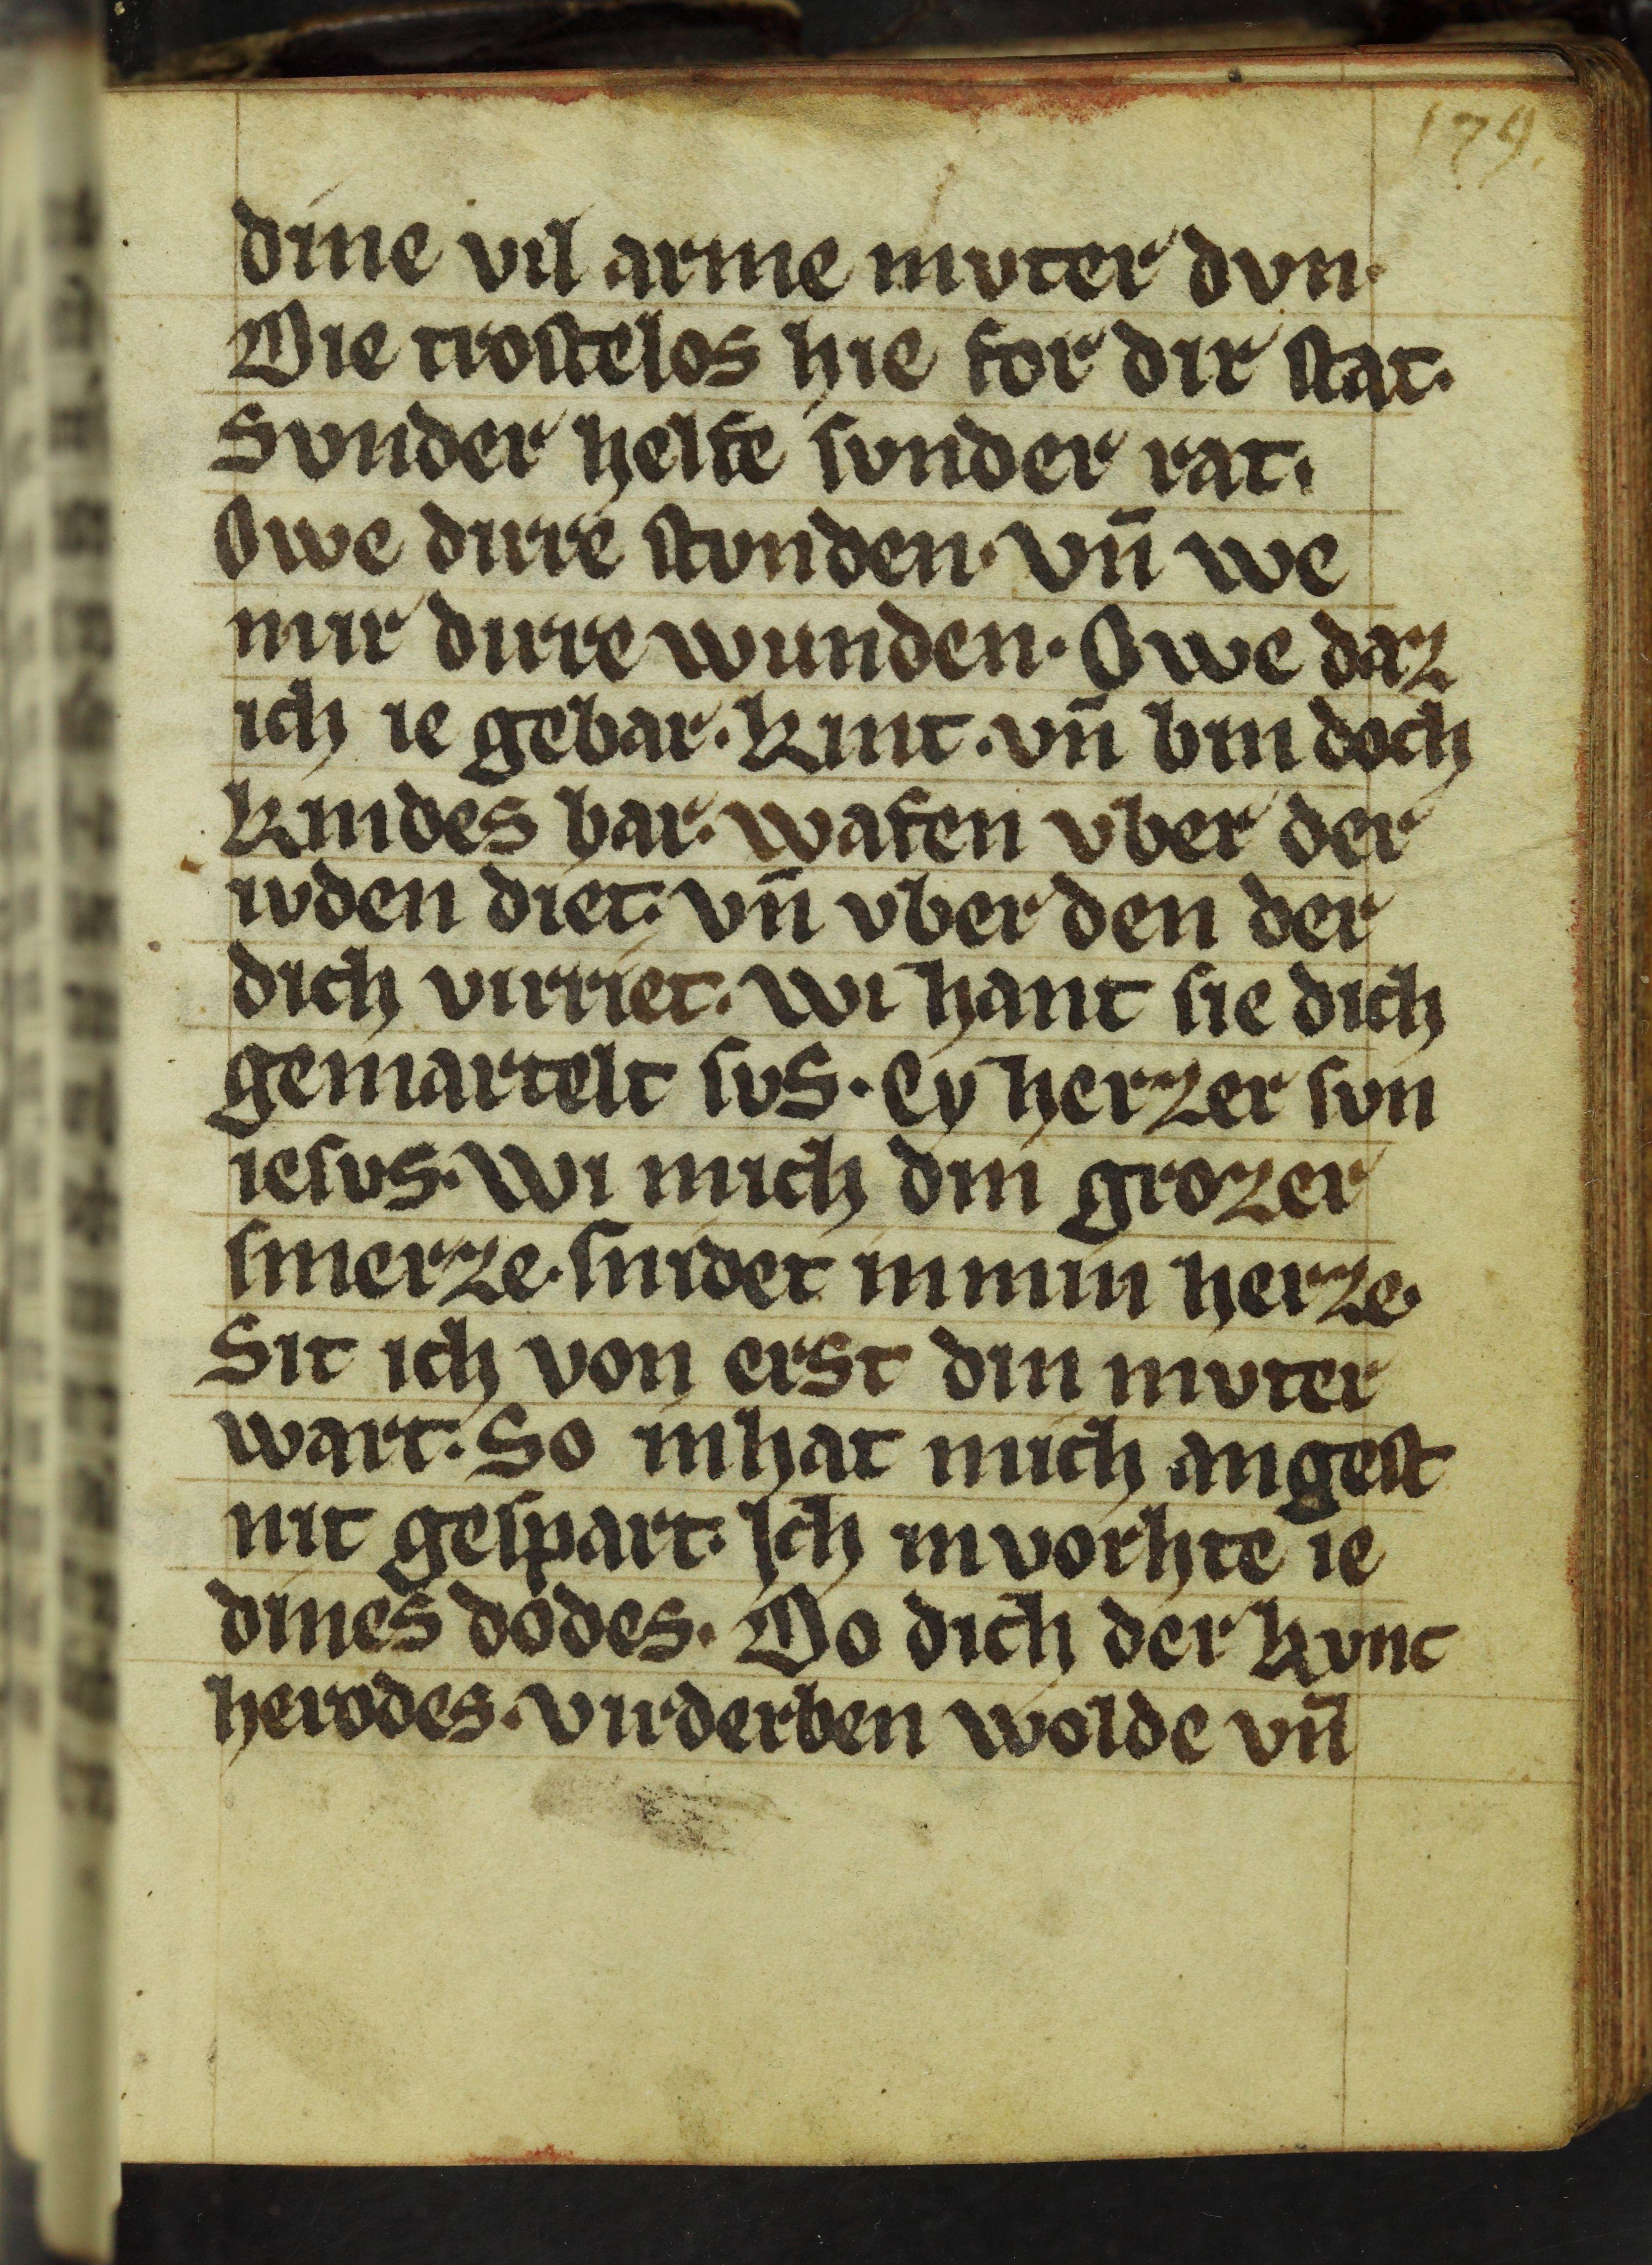 179.
dine vil arme mvter dvn.
Die trostelos hie for dir stat.
Svnder helfe svnder rat.
Owe dirre stvnden. vn̄ we
mir dirre wunden. Owe daz
ich ie gebar. kint. vn̄ bin doch
kindes bar. wafen vber der
ivden diet. vn̄ vber den der
dich virriet. wi hant sie dich
gemartelt svs. Ey herzer svn
iesvs. wi mich din grozer
smerze. snidet in min herze.
Sit ich von erst din mvter
wart. So inhat mich angest
nit gespart. Ich invorhte ie
dines dodes. Do dich der kvnc
herodes. virderben wolde vn̄